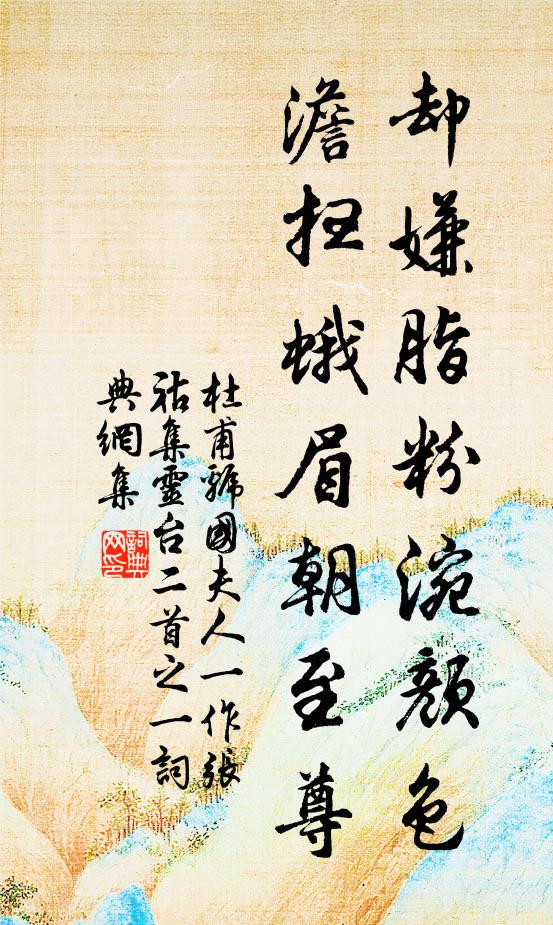 却嫌脂粉涴顏色
澹扫蛾眉朝至尊
杜甫虢國夫人一作張
祜集靈台二首之一詞
典網集
詞典
网印